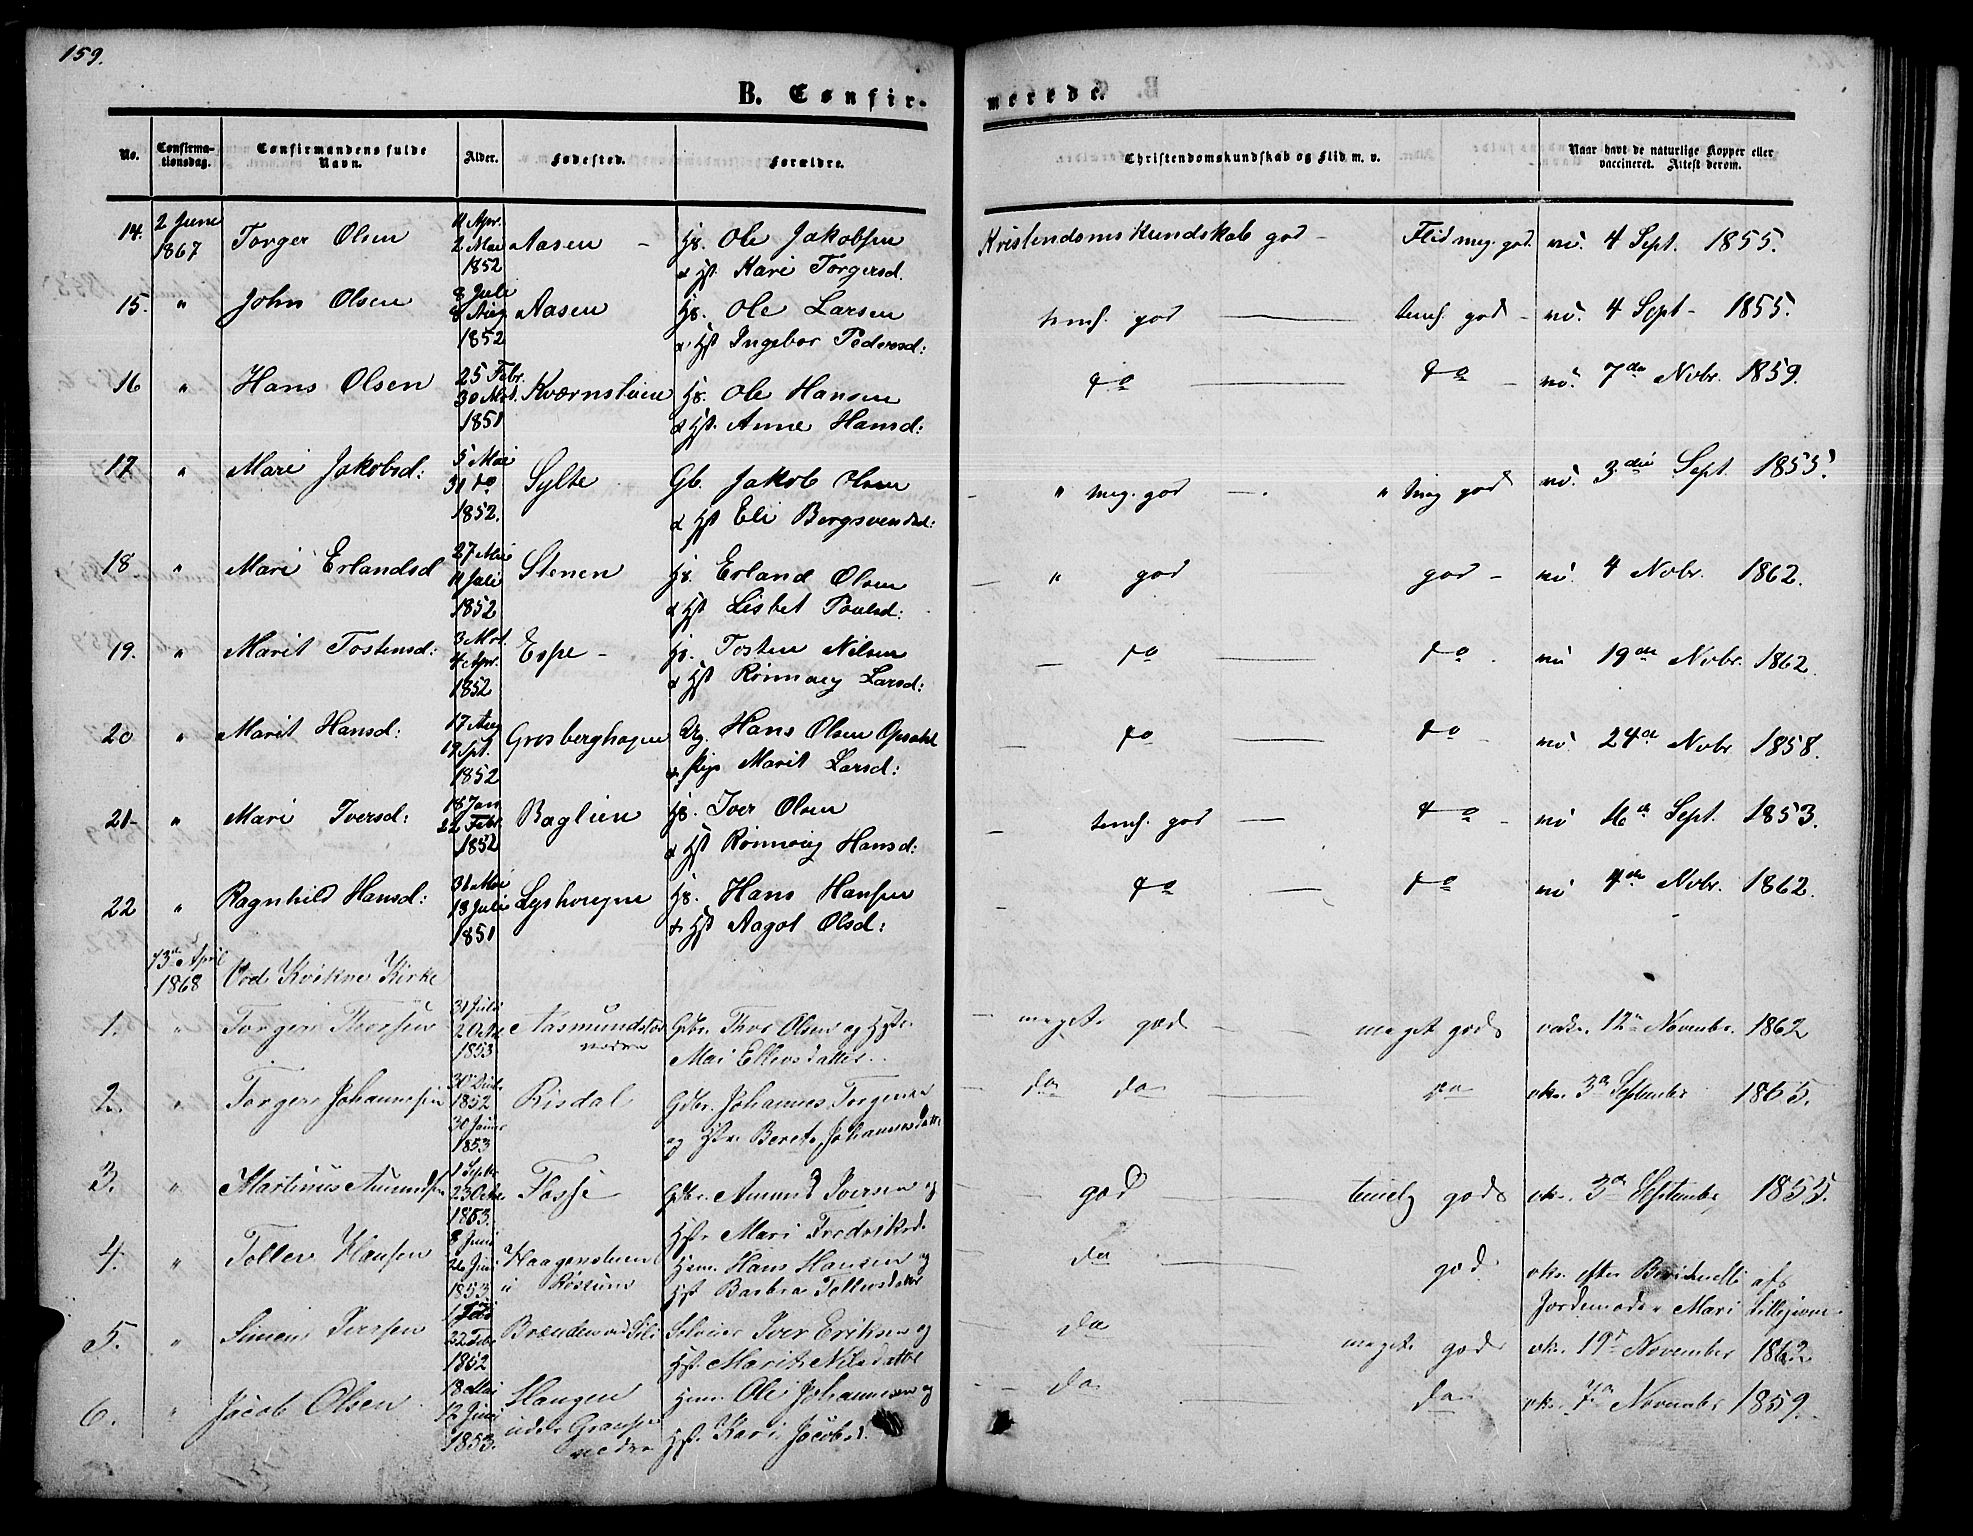 159.
B. Confir-
merede.
No.
Confirma-
tionsdag.
Confirmandens fulde
Navn.
Alder.
Fødested.
Forældre.
Christendomskundskab og Flid m. v.
Naar havt de naturlige Kopper eller
vaccineret. Attest derom.
14. 2 Juni 1867 Torger Olsen 11 Apr. 2 Mai 1852 Aasen - Hs. Ole Jakobsen
& Hst Kari Torgersd. Kristendoms Kundskab god - Flid meg. god. vü. 4 Sept. 1855.
15. " John Olsen 8 Juli 8 Aug 1852 Aasen Hs. Ole Larsen
& Hst Ingebor Pedersd: temf. god temf. god - vü. 4 Sept - 1855.
16 " Hans Olsen 25 Febr. 30 Mrt. 1851 Kværnstuen Hs. Ole Hansen
& Hst. Anne Hansd: do do - vü. 7de Nvbr. 1859.
17 " Mari Jakobsd: 5 Mai 31 do 1852. Sylte Gb. Jakob Olsen
& Hst Eli Bergsvendsd: - " meg. god " meg god vü. 3die Sept. 1855.
18 " Mari Erlandsd 27 Mai 11 Juli 1852 Stenen Hs. Erland Olsen
& Hst Lisbet Poulsd: - " god god - vü. 4 Nvbr. 1862.
19. " Marit Tostensd: 3 Mrt. 4 Apr. 1852 Espe - Hs. Tosten Nilsen
& Hst Rønnaug Larsd: - do do - vü 19de Nvbr. 1862.
20 " Marit Hansd: 17 Aug 19 Spt. 1852 Grosberghagen Ug. Hans Olsen Opsahl
& Pige Marit Larsd: - do do - vü. 24de Nvbr 1858.
21- " Mari Iversd: 18 Jan 22 Febr. 1852 Baglien Hs. Iver Olsen
& Hst Rønnaug Hansd: - temf. god do - vü 16de Sept. 1853.
22 " Ragnhild Hansd: 31 Mai 13 Juli 1851 Lyshougen Hs. Hans Hansen
& Hst Aagot Olsd: - do do - vü 4de Nvbr. 1862.
April 1868 Ved Kvikne Kirke
1. " Torger Thorsen 31 Juli 2 Octr 1853 Aasmundstad
nedre Gdbr. Thor Olsen og Hstr.
Mari Ellevsdatter - meget god - meget god vakc. 12te Novembr. 1862
2. " Torger Johannesen 30 Decbr. 1852 30 Januar 1853 Risdal Gdbr. Johannes Torgersen
og Hstr Beret Johannesdatter - do do do vkc. 3de September 1865.
3. " Martinus Amundsen 1 Septr 23 Octr 1853. Fosse Gdbr. Amund Iversen og
Hstr Mari Fredriksd. - god temlig god vkc. 3de September 1855.
4. " Tollev Hansen 8 Juni 26 Juni 1853 Haagenstuen
u Røssum Hsm. Hans Hansen og
Hst. Barbra Tollevsdatter - do god vkc. efter af
Jordemoder Mari
5. " Simen Iversen 1 Febr 22 Febr 1852 Brænden Selveier Iver Eriksen og
Hst. Marit Nilsdatter do meget god vkc. 19de November 1862
6. " Jacob Olsen 18 Mai 12 Juni 1853. Slangen
under
nedre Hsm. Ole Johannesen og
Hst. Kari Jacobsd. - do do vkc. 7de November 1859.